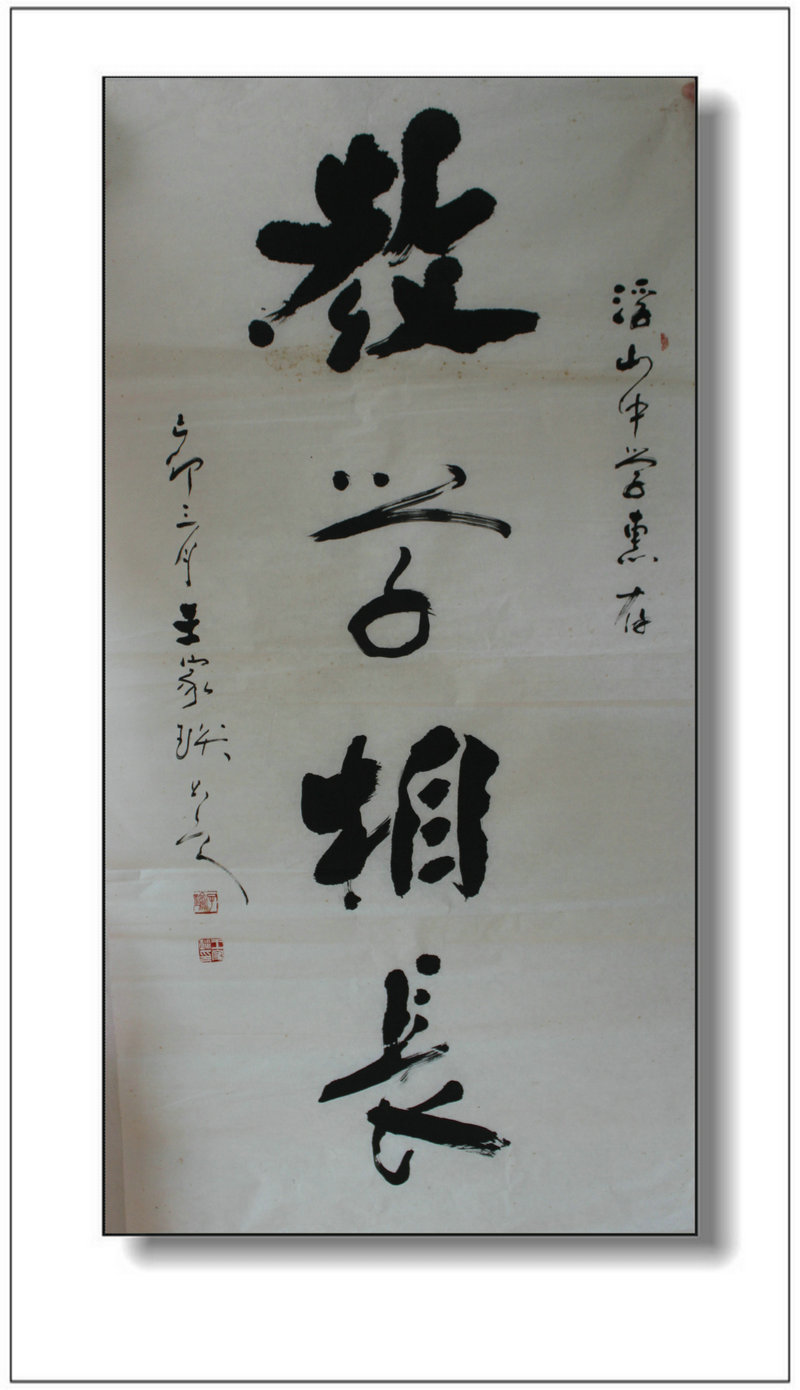 浮山中学惠存
教学相长
己卯三月王家琰书